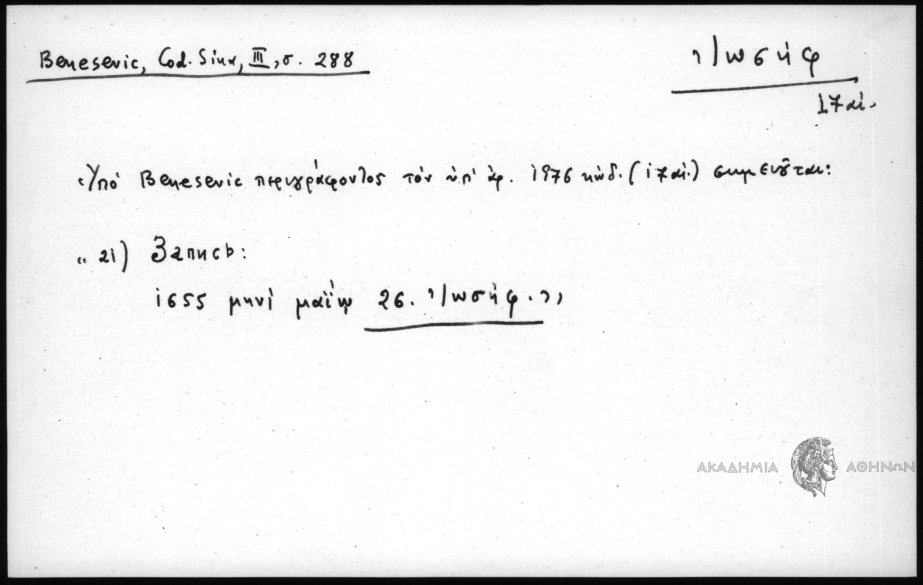 Benesevic, Cod. Sina, III, σ. 288
Ἰωσήφ
17 αἰ.
Ὑπό Benesevic περιγράφοντος τόν ὑπ' ἀρ. 1976 κώδ. (17 αἰ.) σημειοῦται:
" 21) Запись:
1655 μηνί μαΐῳ 26. Ἰωσήφ."
ΑΚΑΔΗΜΙΑ ΑΘΗΝΩΝ